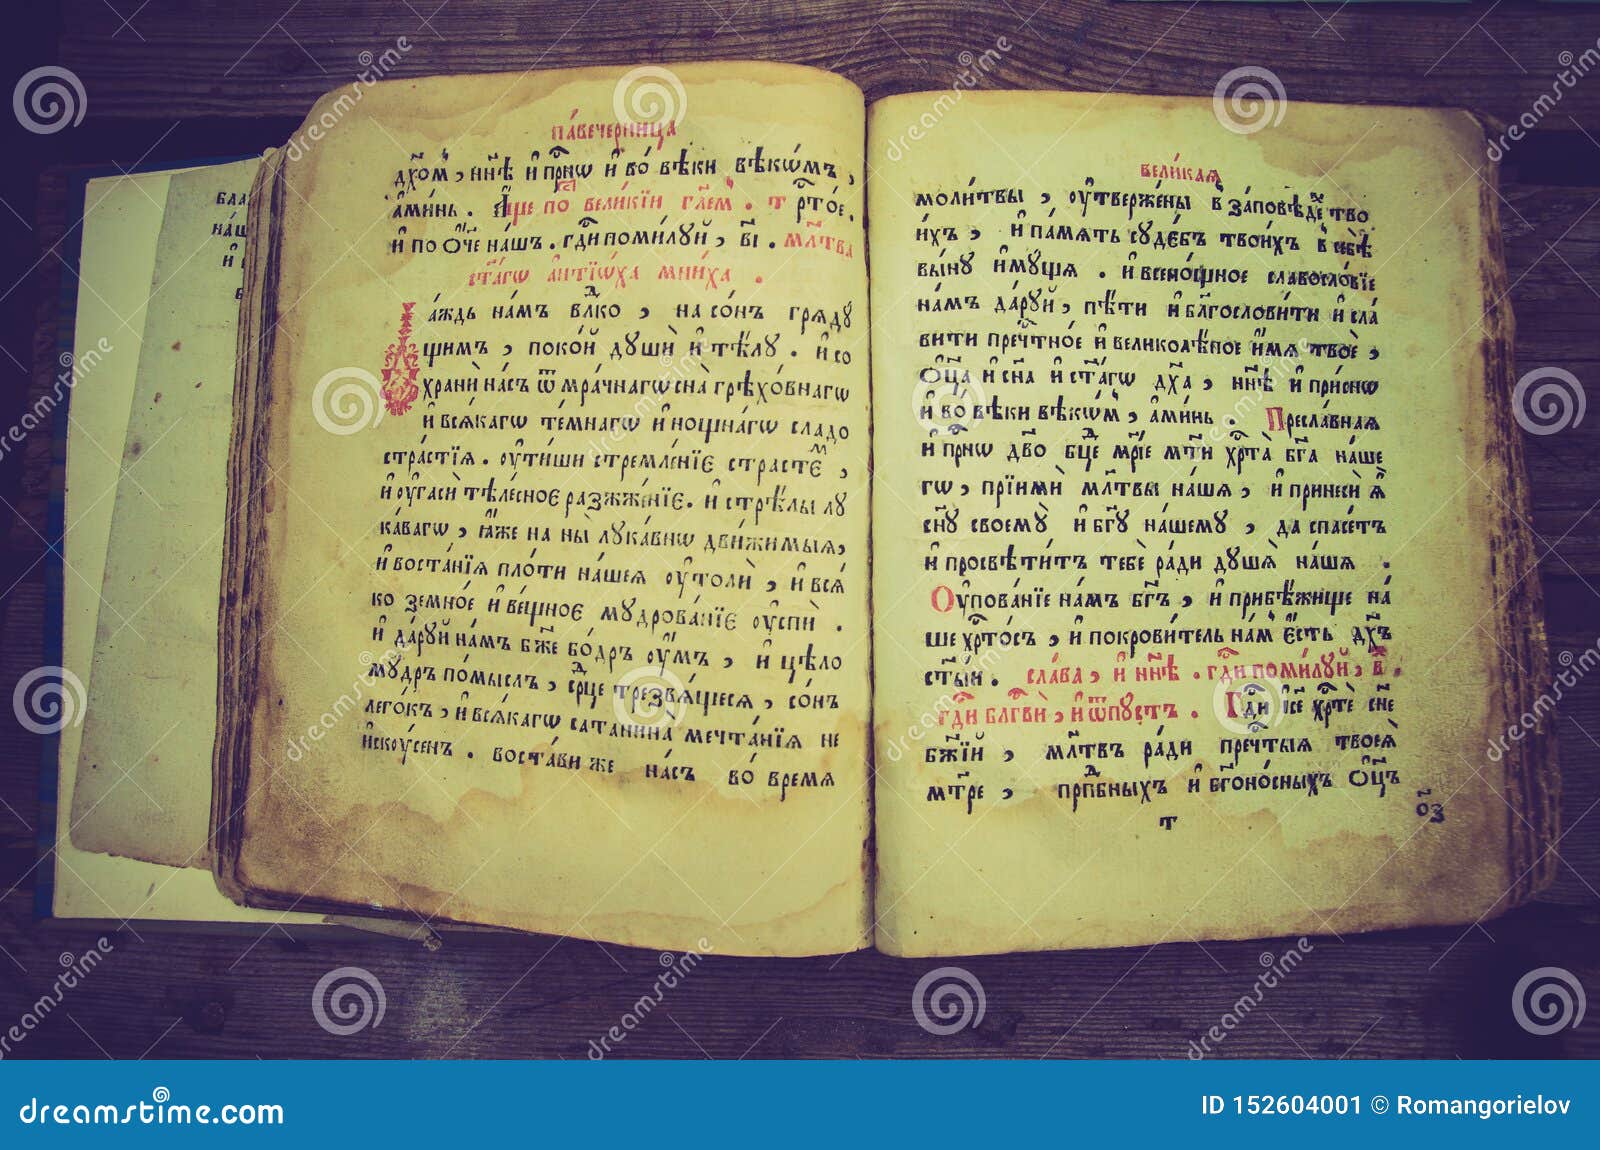 па́вечерница
дх҃омъ, нн҃ѣ и҆ прⷭ҇нѡ и҆ во́ вѣки вѣкѡ́мъ,
а҆ми́нь. А҆́ще по́ вели́кїи гл҃ем. т рⷭ҇тое.
и҆ по Ѻ҆́ч҃е на́шъ. гдⷭ҇и поми́луй, в҃і. мл҃тва
ст҃а́гѡ а҆нтїѡ́ха мни́ха.
а́ждь на́мъ влⷣко, на со́нъ гряду
щимъ, поко́й душѝ и҆ тѣ́лу. и҆ со
хранѝ на́съ ѿ мра́чнагѡ сна̀ грѣхо́внагѡ
и҆ вся́кагѡ те́мнагѡ и҆ нощна́гѡ сладо
стра́стїя. ᲂу҆ти́ши стремле́нїє страсте́й,
и҆ ᲂу҆гасѝ тѣле́сное разжже́нїє. и҆ стрѣ́лы лу
ка́вагѡ, ꙗ҆́же на ны̀ лука́внѡ дви́жимыя,
и҆ воста́нїя пло́ти на́шея ᲂу҆толѝ, и҆ вся́
ко земно́е и҆ ве́щноє мудрова́нїє ᲂу҆спѝ.
и҆ да́руй на́мъ бж҃е бо́дръ ᲂу҆́мъ, и҆ цѣ́ло
му́дръ по́мыслъ, срⷣце трезвя́щеся, со́нъ
ле́гокъ, и҆ вся́кагѡ сатанина̀ мечта́нїя не
и҆скѹ́сенъ. воста́ви же на́съ во́ время
вели́кая
моли́твы, ᲂу҆твержены̀ в за́повѣдⷯе тво
и́хъ, и҆ па́мять суде́бъ твои́хъ в себѣ̀
вы́ну и҆му́щя. и҆ всено́щное славосло́вїе
на́мъ да́руй, пѣ́ти и҆ бл҃гослови́ти и҆ сла́
вити пречⷭ҇тно́е и҆ великолѣ́пое и҆́мя твоѐ,
Ѻ҆ц҃а̀ и҆ сн҃а и҆ ст҃а́гѡ дх҃а, нн҃ѣ и҆ при́снѡ
и҆ во́ вѣ́ки вѣкѡ́мъ, а҆ми́нь. Пресла́вная
и҆ прⷭ҇нѡ дв҃о бц҃е мр҃іе мт҃и хрⷭ҇та̀ бг҃а на́ше
гѡ, прїимѝ мл҃твы на́шя, и҆ принесѝ ꙗ҆̀
сн҃у своемꙋ̀ и҆ бг҃у на́шему, да спасе́тъ
и҆ просвѣти́тъ тебѐ ра́ди ду́шя̀ на́шя.
Оу҆пова́нїе на́мъ бг҃ъ, и҆ прибѣ́жище на́
ше хрⷭ҇то́съ, и҆ покрови́тель на́м є҆́сть дх҃ъ
ст҃ы́й. сла́ва, и҆ нн҃ѣ. гдⷭ҇и поми́луй, в҃.
гдⷭ҇и блⷭ҇гвѝ, и҆ ѿпу́стъ. Гдⷭ҇и і҆с҃е хрⷭ҇тѐ сн҃е
бж҃їй, мл҃твъ ра́ди пречⷭ҇тыя твоея̀
мт҃ре, прпⷣбныхъ и҆ бг҃оно́сныхъ Ѻ҆ц҃ъ
т
о҃з
dreamstime.com
ID 152604001 © Romangorielov